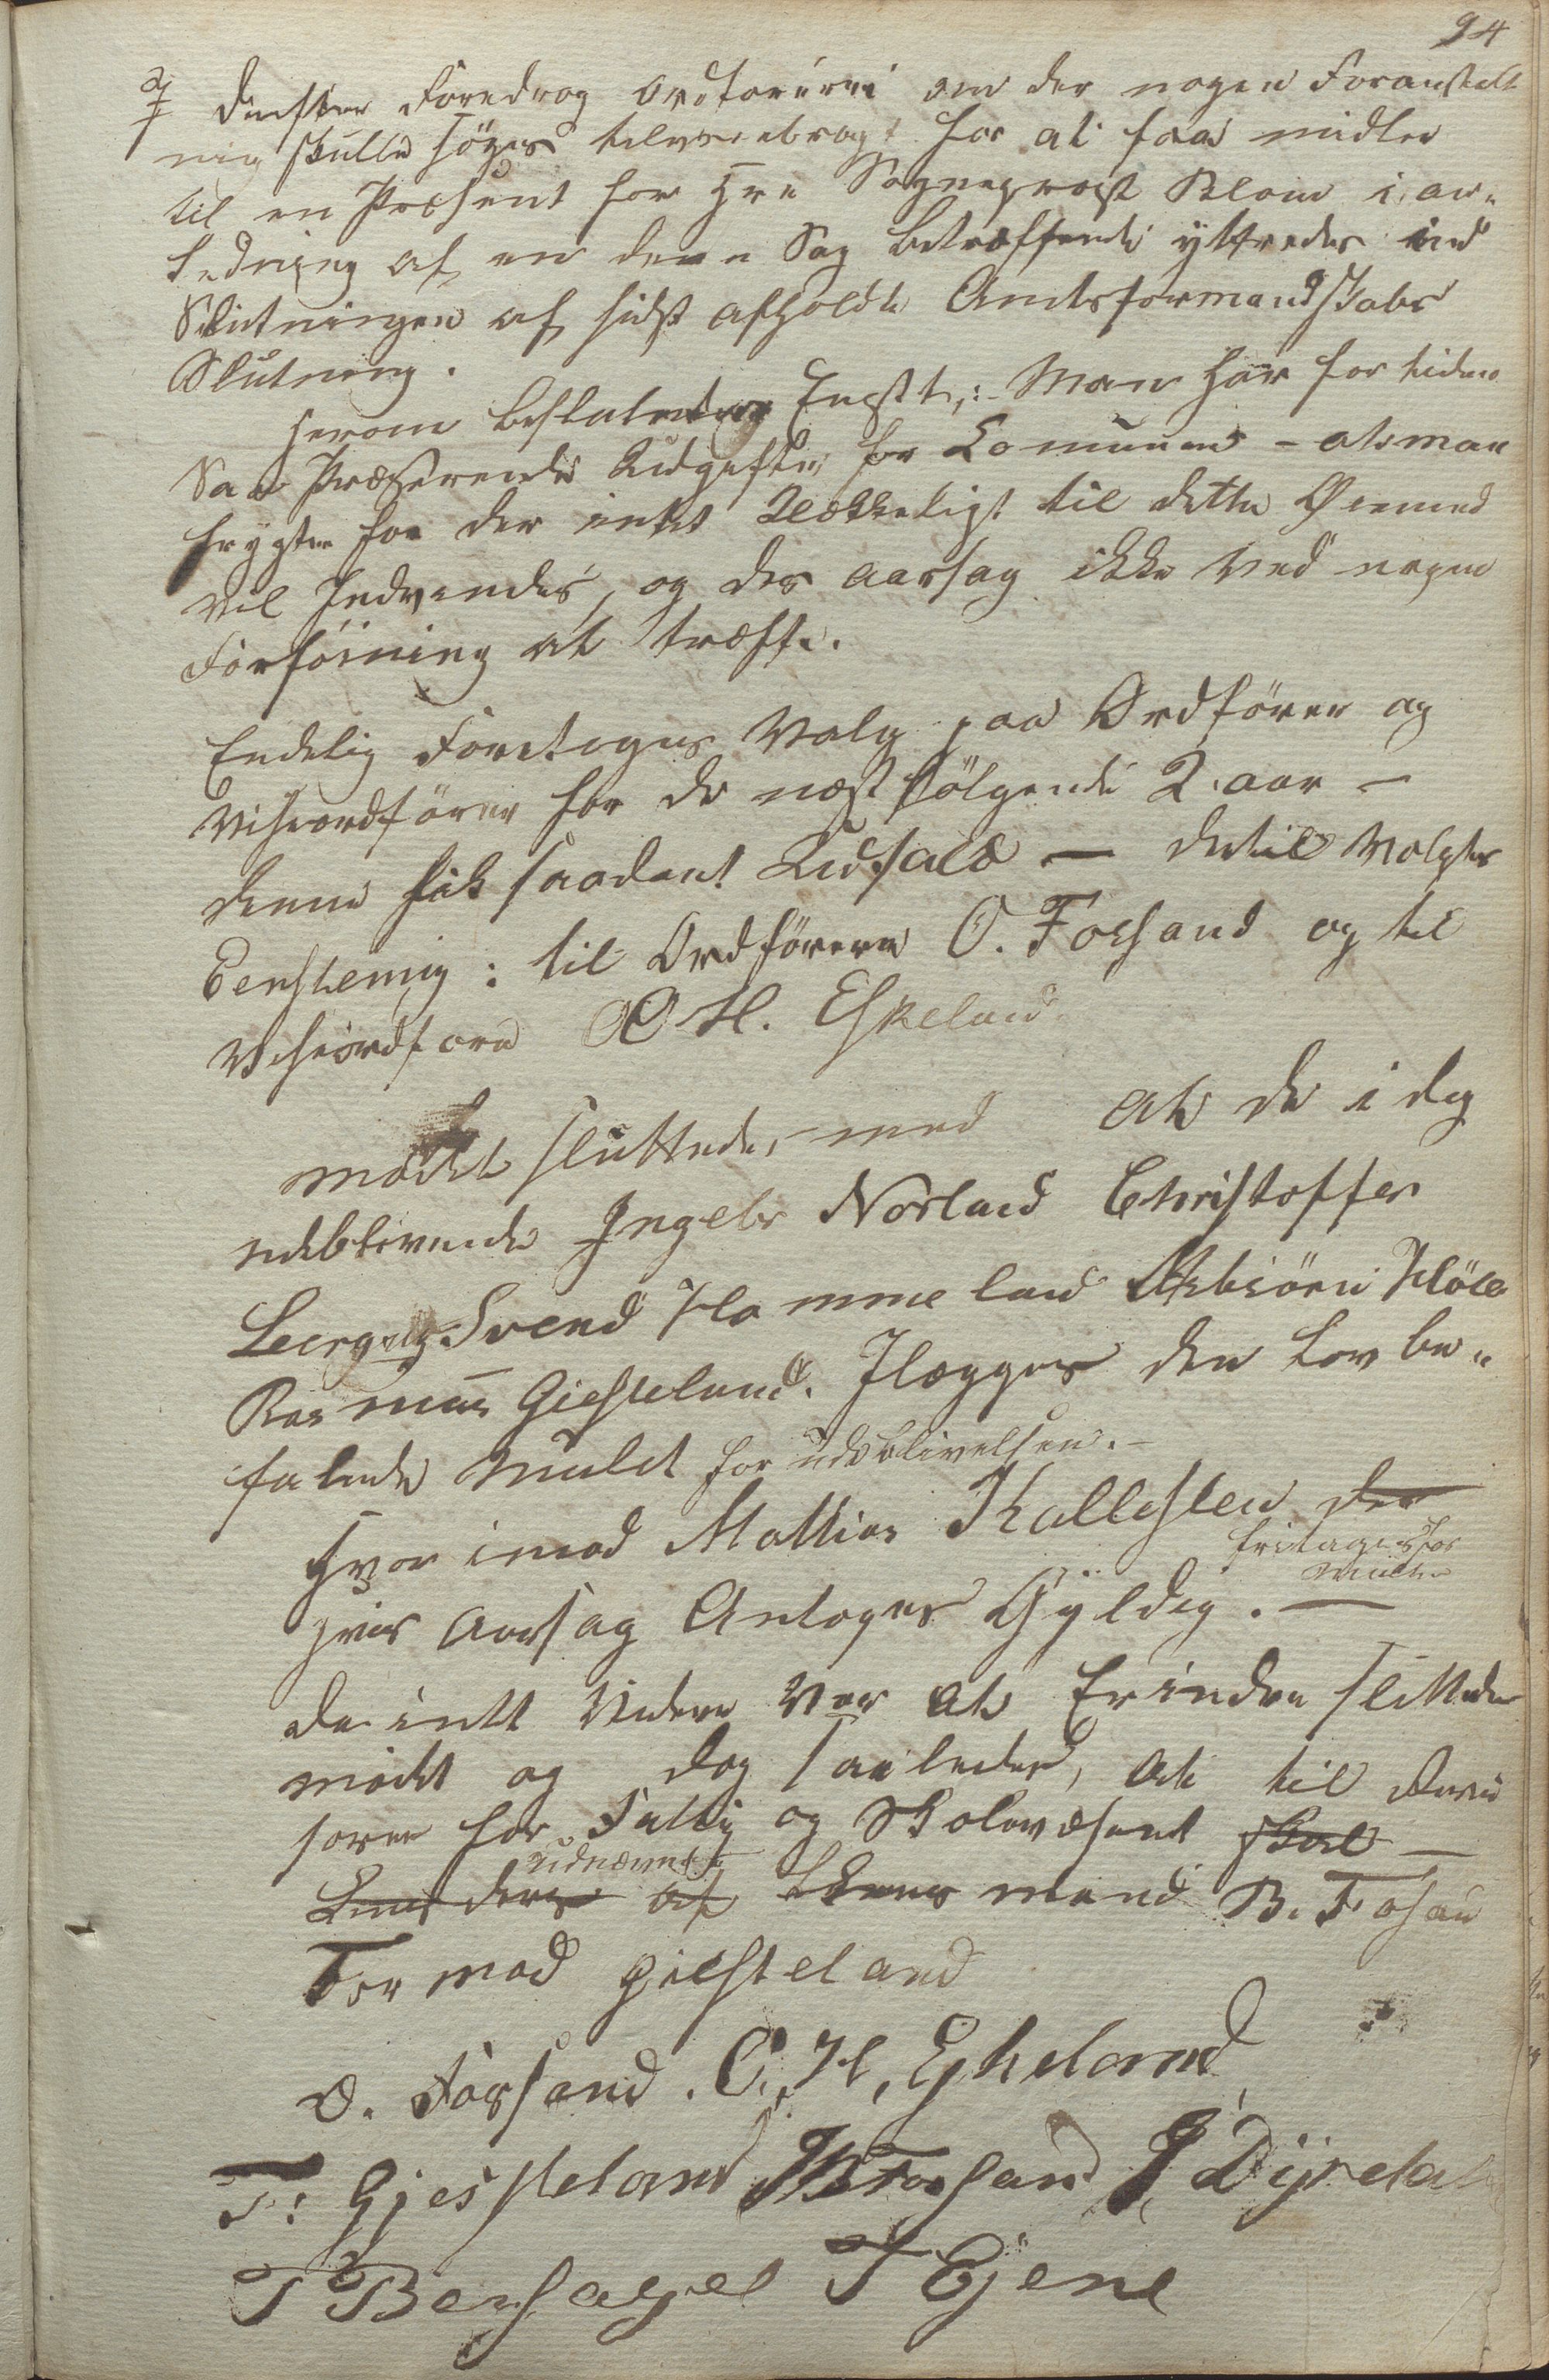 94
Dernest Foredrog Ordførerne om der nogen Foranstalt
nig skulle söges tilveiebragt for at faa midler
til en Præsent for Hrr Sogneprest Blom i an-
ledning af en denne Sag betræffende yttredes ved
Slutningen af sidst afholdte Amtsformandskabs
Slutning.
Herom besluttedes Eenst: Man har for tiden
saa Præserende Udgifter for Comunen - at man
frygter for der intet Rækkeligt til dette Øiemed
vil Indvindes, og des aarsag ikke ved nogen
Forföining at træffe.
Endelig Foretoges Valg paa Ordförer og
Viseordförer for de næst fölgende 2 aar -
denne fik saadant Udfald - dertil Valgtes
Eenstemig: til Ordförere O. Forsand og til
Viseordförer O H. Eskeland
mödet sluttede, med at de i dag
udeblivende Ingebr Norland Christoffer
Leerg Svend Hammeland Asbiörn Höle
Rasmus Giesteland. Ilægges den Lov be-
falede Mulct for udeblivelsen. -
Hvor imod Mathias Kallesten der
fritages for
Mulcten
hvis aarsag Antoges Gyldig. -
da intet Videre Var at Erindre sluttedes
mödet og dog saaledes, at til Revi
sorer for Fattig og Skolevæsenet skal -
udnævntes
af mænd B. Fosan
Tormod giesteland
O. Forsand. O. H. Eskeland
T: Gjesteland B Forsand J Dijredal
T Bersagel T Eiene